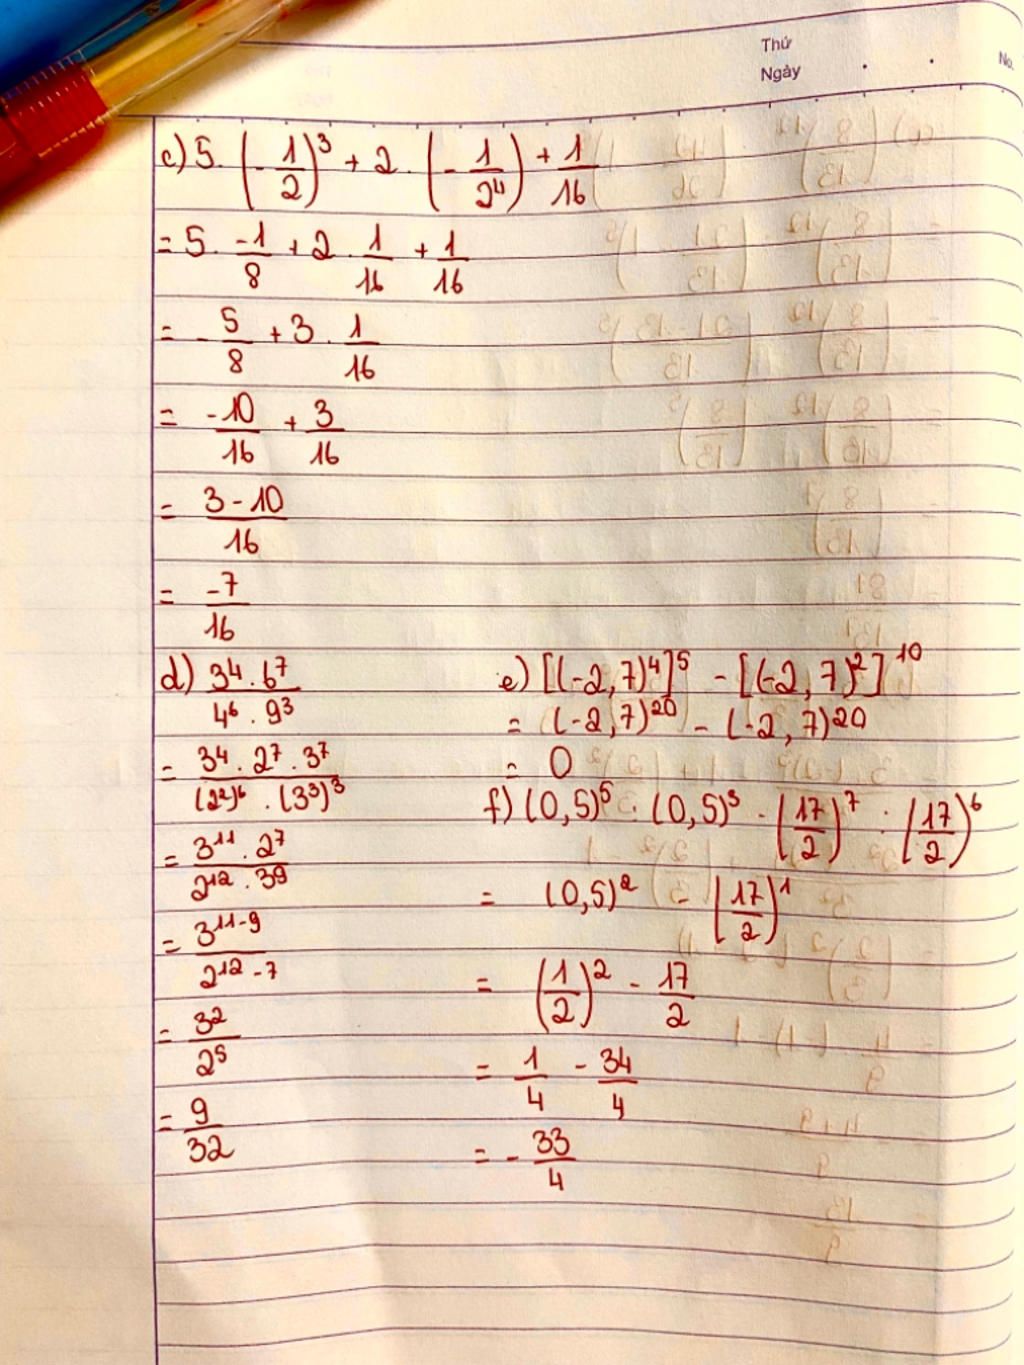 Thứ
Ngày
No.
c) 5 . (-1/2)³ + 2 . (-1/2⁴) + 1/16
= 5 . -1/8 + 2 . 1/16 + 1/16
= - 5/8 + 3 . 1/16
= -10/16 + 3/16
= 3 - 10/16
= -7/16
d) 3⁴ . 6⁷/4⁶ . 9³
= 3⁴ . 2⁷ . 3⁷/(2²)⁶ . (3³)³
= 3¹¹ . 2⁷/2¹² . 3⁹
= 3¹¹⁻⁹/2¹² - 7
= 3²/2⁵
= 9/32
e) [(-2,7)⁴]⁵ - [(-2,7)²]¹⁰
= (-2,7)²⁰ - (-2,7)²⁰
= 0
f) (0,5)⁵ : (0,5)³ - (17/2)⁷ : (17/2)⁶
= (0,5)² - (17/2)¹
= (1/2)² - 17/2
= 1/4 - 34/4
= - 33/4